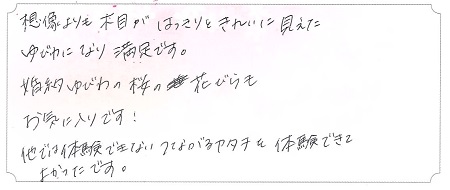 想像よりも木目がはっきりときれいに見えた
ゆびわになり満足です。
婚約ゆびわの桜の花びらも
お気に入りです!
他では体験できないつながるカタチを体験できて
よかったです。